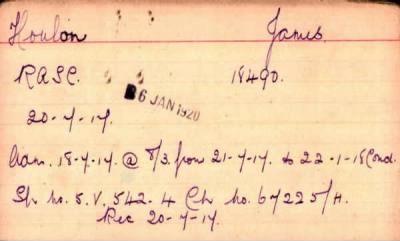 Houlon James.
R.A.S.C. 18490.
26 JAN 1920
20-7-17.
Com. 18-7-17. @ 8/3. from 21-7-17. to 22-1-18 Cond.
Sp. no. S.V. 542-4 Ch no. 67225/H.
Rec 20-7-17.